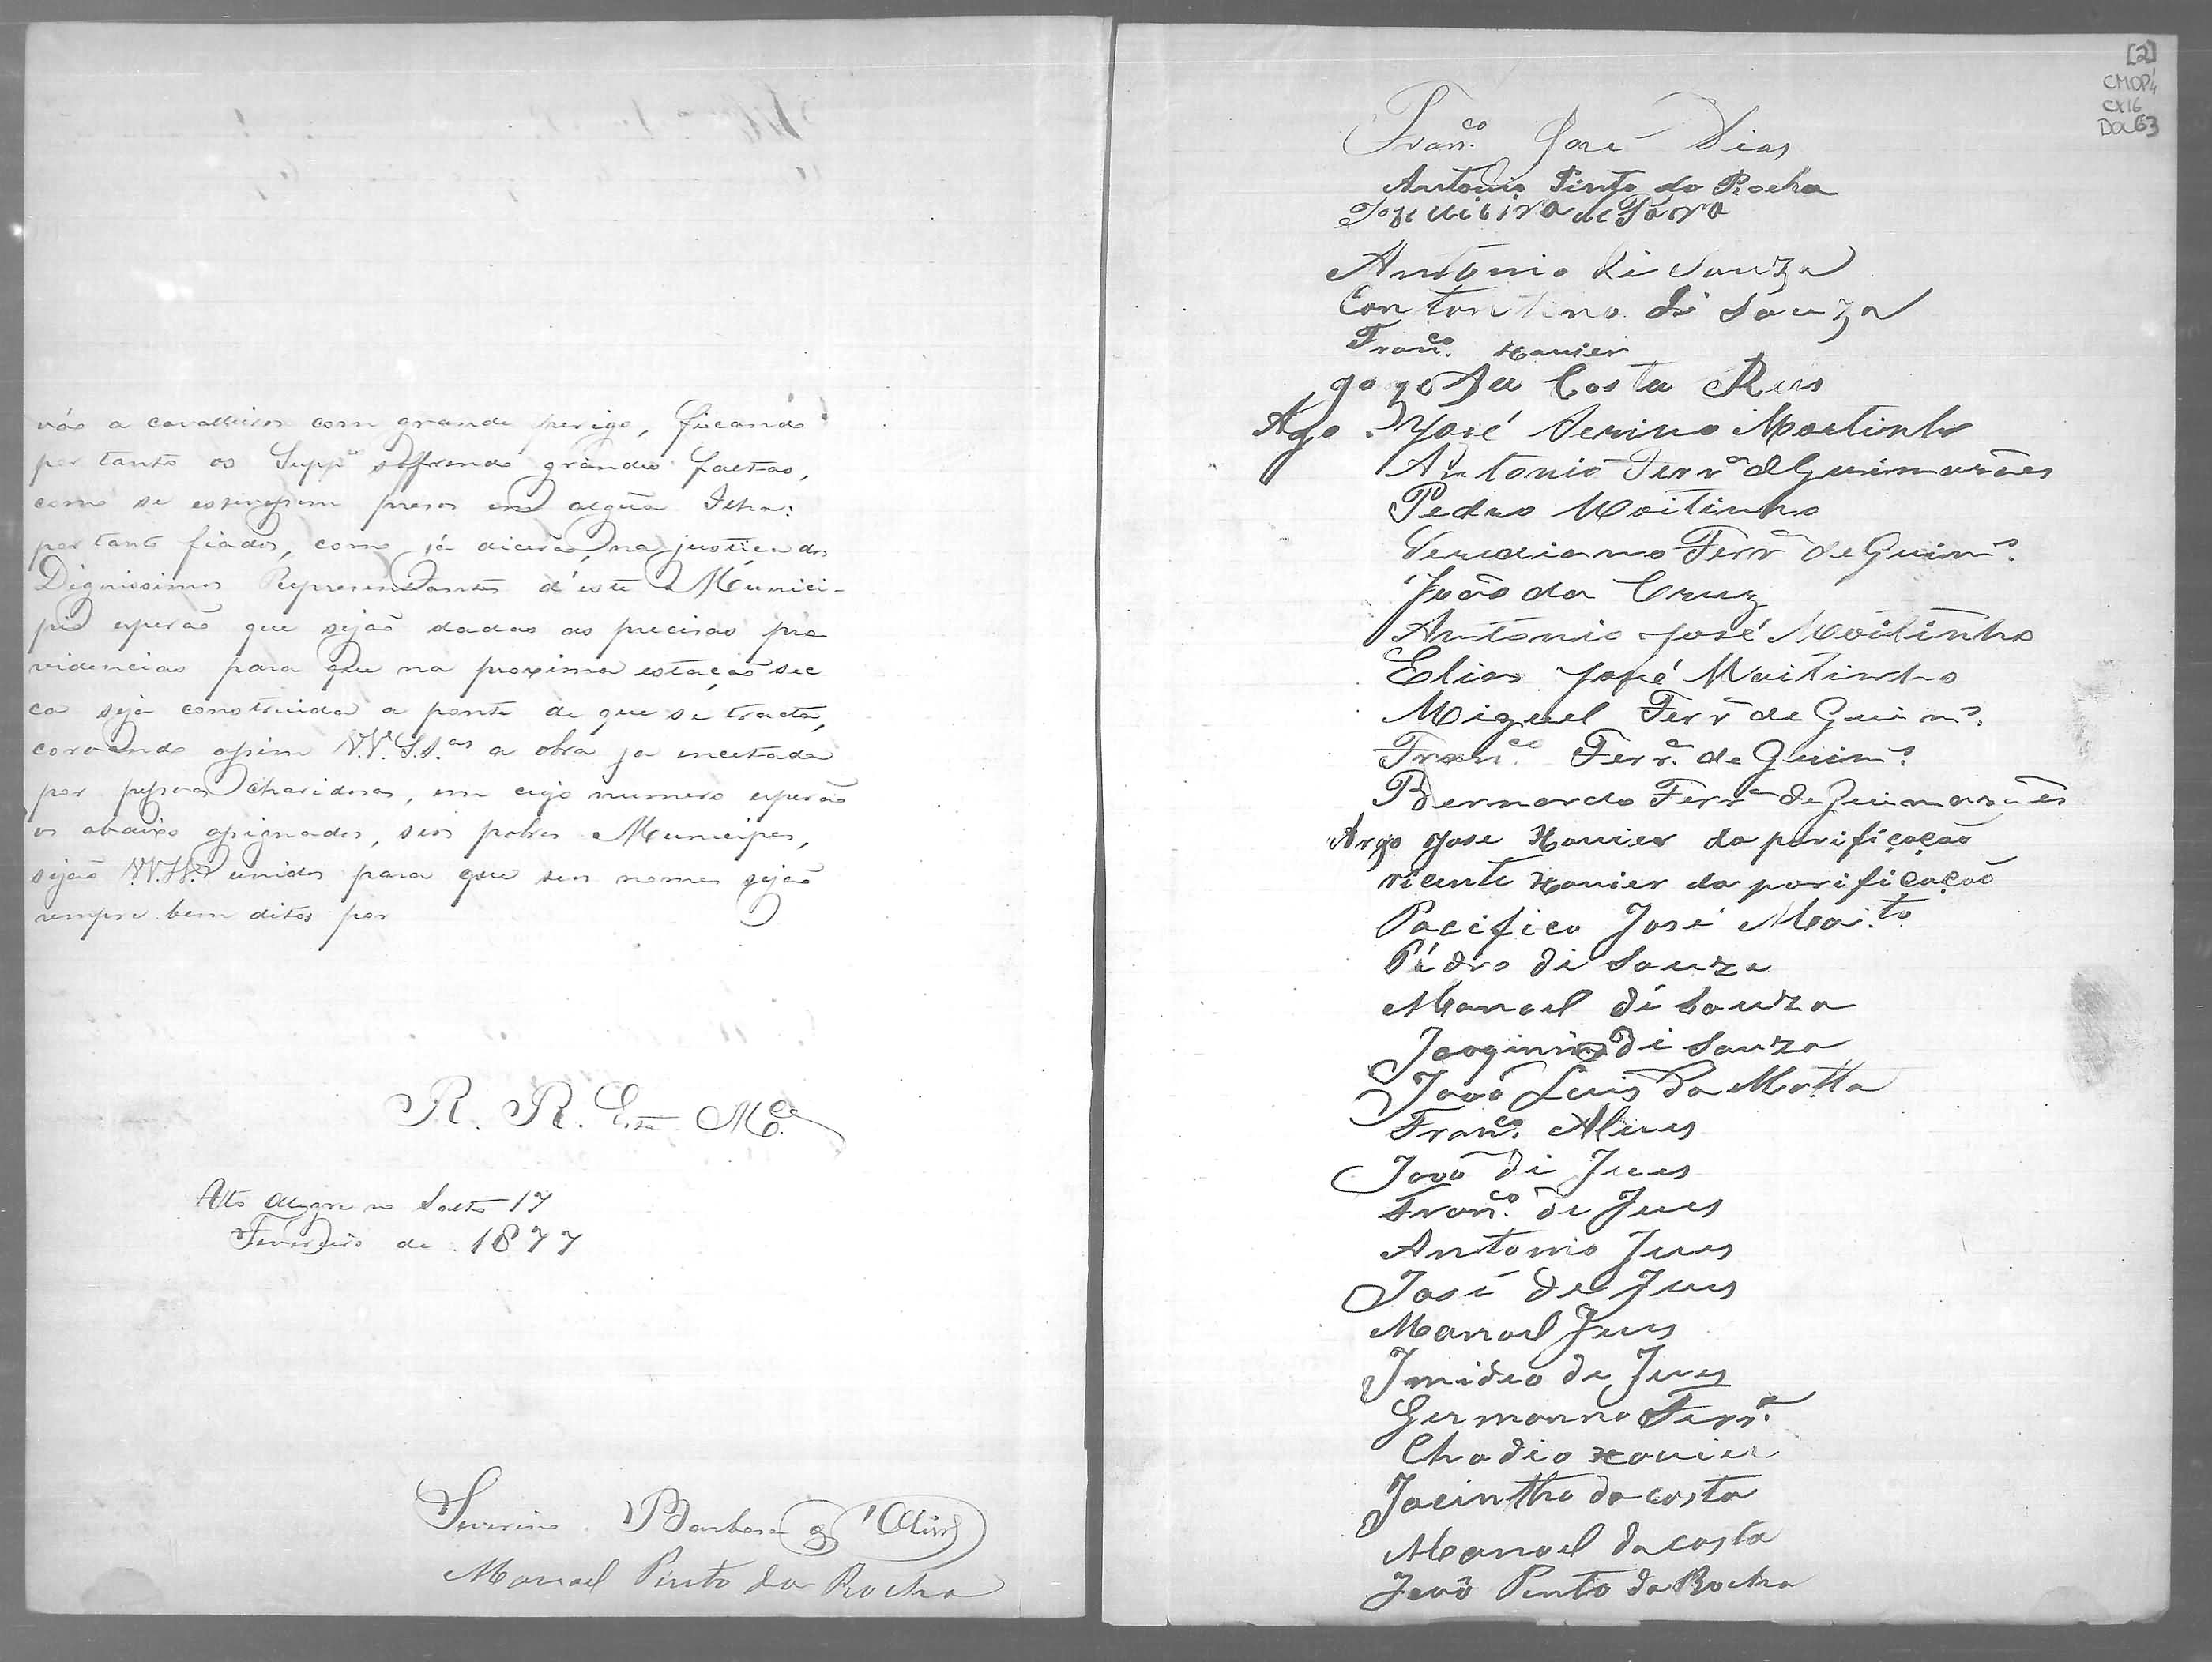 vão a cavalleiros com grande perigo, ficando
por tanto os Supp.es soffrendo grandes faltas,
como se estivessem presos em algũa Ilha:
por tanto fiados, como já dicerão, na justiça dos
Dignissimos Representantes d'este Munici-
pio esperão que sejão dadas as precisas pro
videncias para que na proxima estação sec
ca seja construida a ponte de que se tracta,
coroando assim V.V. S.S.as a obra ja encetada
por pessoas charidosas, em cujo numero esperão
os abaixo assignados, seos pobres Municipes,
sejão V.V.S.S. unidos para que seus nomes sejão
sempre bem ditos por
R. R. E. M.ce
Alto Alegre no Salto 17
Fevereiro de 1877
Severino Barbosa
Manoel Pinto da Rocha
[2]
CMOP
CX16
Doc 63
Fran.co José Dias
Antonio Pinto da Rocha
Antonio di Souza
di Souza
Fran.co Xavier
Joze da Costa Reis
José Martinho
Antonio Ferr.a de Guimarães
Pedro Moitinho
Ferr.a de Guim.s
João da Cruz
Antonio José Moitinho
Elias José Moitinho
Miguel Ferr.a de Guim.s
Fran.co Ferr.a de Guim.s
Bernardo Ferr.a de Guimarães
Argo Jose Xavier da porificação
vicente Xavier da porificação
Pacifico José Moi.to
Pédro di Souza
Manoel di Souza
di Souza
João Luis da Motta
Fran.co Alves
João di Jues
Fran.co de Jues
Antonio Jues
José de Jues
Manoel Jues
Imideo de Jues
Germanno Ferr.a
Chadio Xavier
Jacintho da costa
Manoel da costa
João Pinto da Rocha